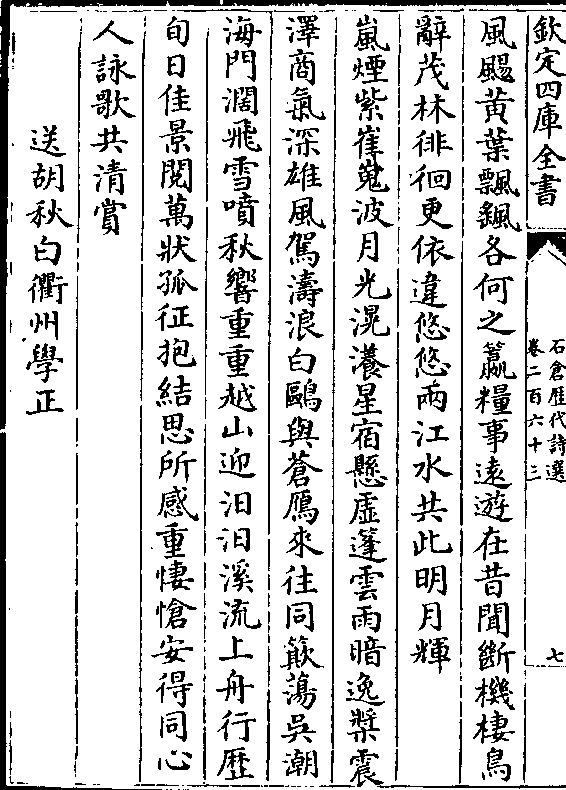 欽定四庫全書
石倉歷代詩選
卷二百六十三
七
風颺黃葉飄颻各何之籝糧事遠遊在昔聞斷機棲鳥
辭茂林徘徊更依違悠悠兩江水共此明月輝
嵐煙紫崔嵬波月光滉瀁星宿懸虛蓬雲雨暗逸槳震
澤商氣深雄風駕濤浪白鷗與蒼鴈來往同簸蕩吳潮
海門濶飛雪噴秋響重重越山迎汨汨溪流上舟行歴
旬日佳景閱萬狀孤征抱結思所感重悽愴安得同心
人詠歌共清賞
送胡秋白衢州學正